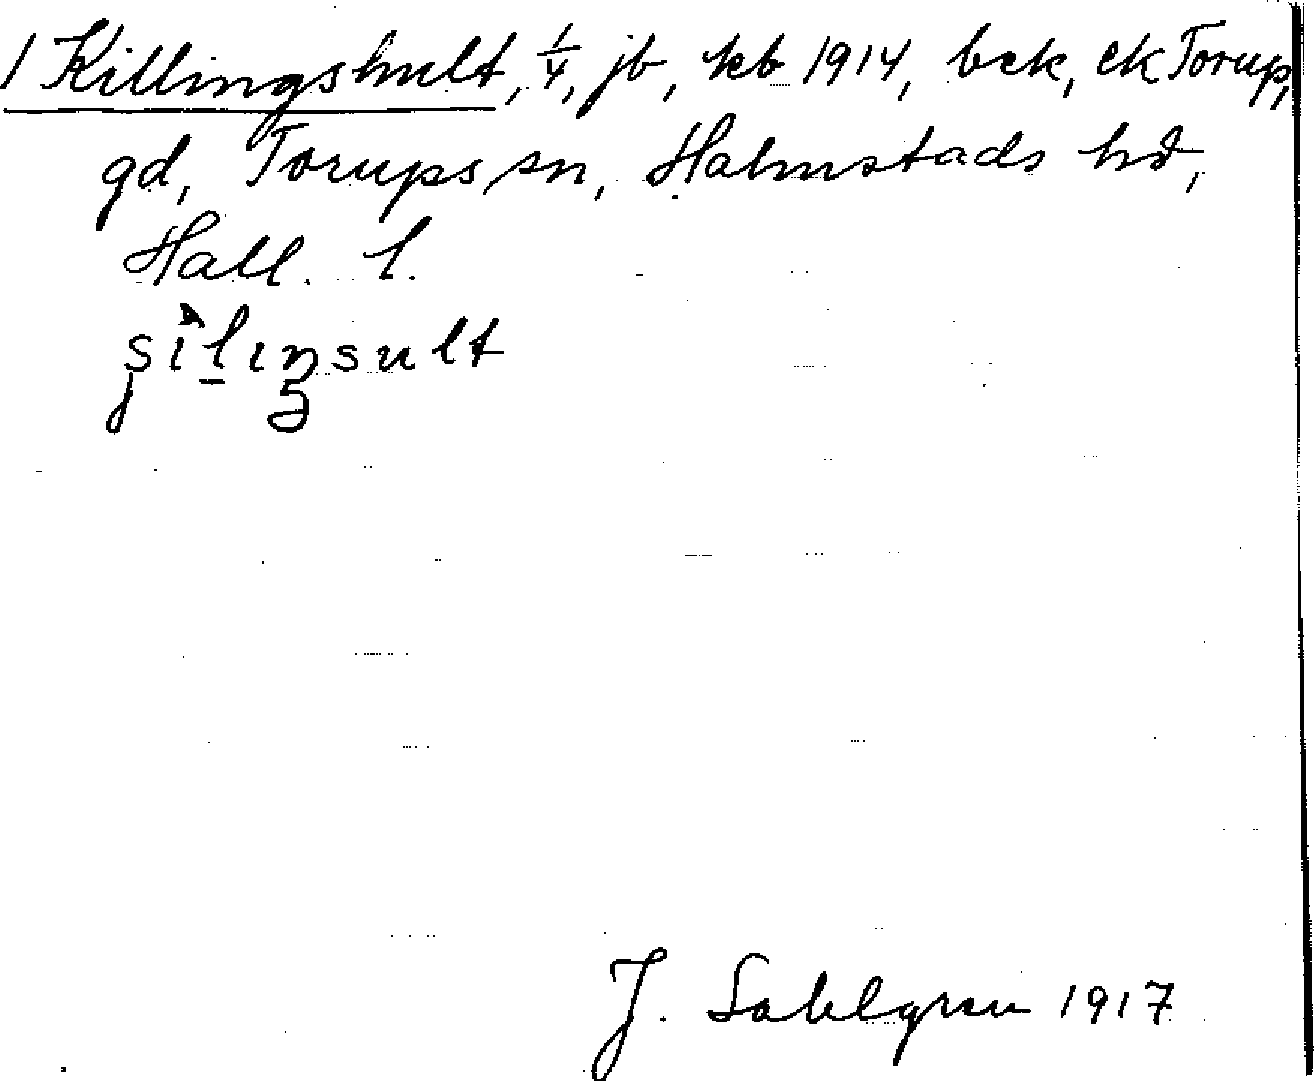 1 Killingshult, 1/4, jb, kb 1914, bek, ek Torup,
gd, Torups sn, Halmstads hd,
Hall. l.
J. Sahlgren 1917